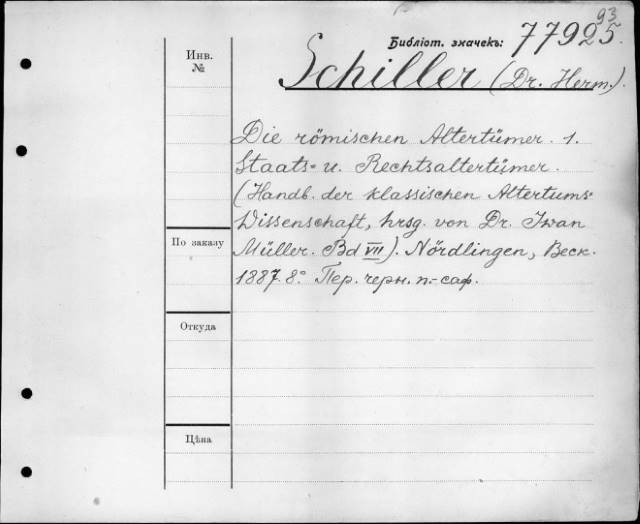 93
Библіот. значекъ: 77925.
Инв. №
Schiller (Dr. Herm.).
Die römischen Altertümer. 1.
Staats- u. Rechtsaltertümer.
(Handb. der klassischen Altertums-
Wissenschaft, hrsg. von Dr. Iwan
По заказу
Müller. Bd VII). Nördlingen, Beck.
1887. 8° Пер. черн. п.-саф.
Откуда
Цѣна